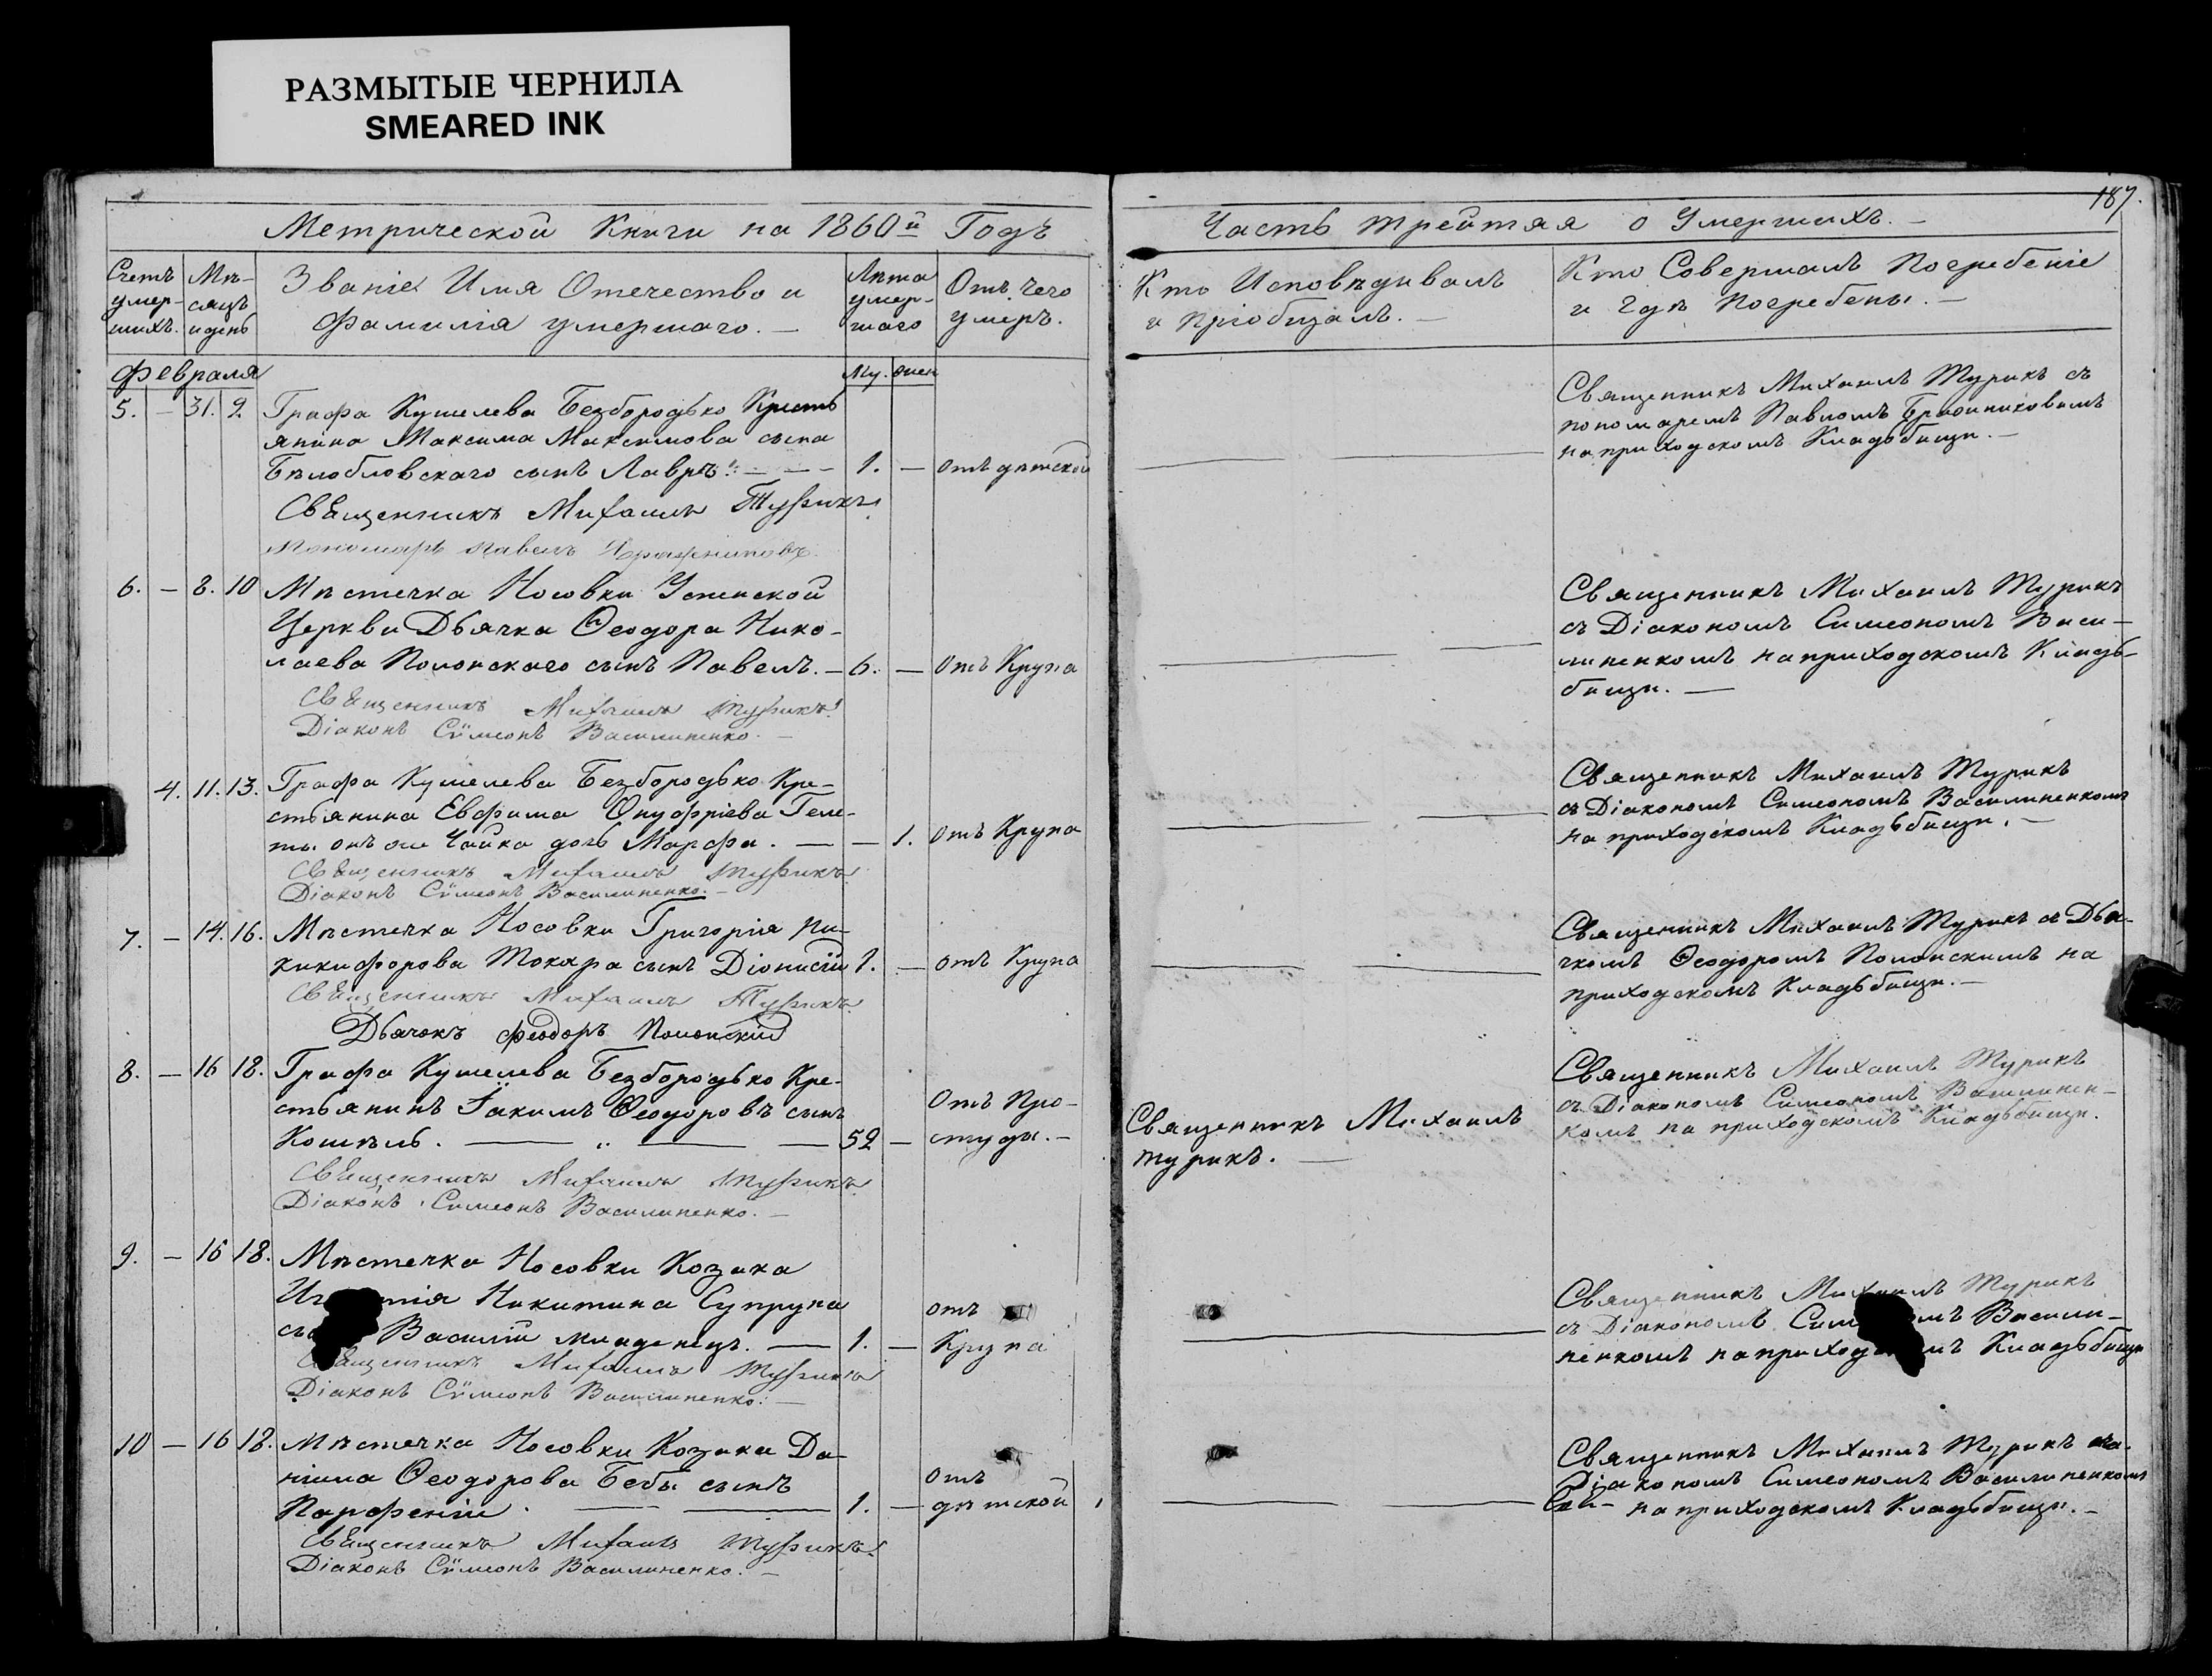 РАЗМЫТЫЕ ЧЕРНИЛА
SMEARED INK
187.
Метрической Книги на 1860й Годъ
Часть третяя о Умершихъ.
Счетъ умер-шихъ.
Мѣ-сяцъ и день
Званіе Имя Отечество и
Фамилія умершаго.
Лѣта умер-шаго
Отъ чего умеръ.
Кто Исповѣдивалъ
и пріобщалъ.
Кто Совершалъ Погребеніе
и Гдѣ Погребены.
Февраля
Му. жен
5. - 31. 2. Графа Кушелева Безбородько Кресть
янина Максима Максимова сына
Бѣлобловскаго сынъ Лавръ. 1. - отъ дѣтской
Священникъ Михаилъ Турикъ
Пономарь Павелъ
Священникъ Михаилъ Турикъ съ
пономаремъ Павломъ
на приходскомъ Кладьбищѣ.
6. - 8. 10 Мѣстечка Носовки Успенской
Церкви Дьячка Ѳеодора Нико-
лаева Полонскаго сынъ Павелъ. - 6. - Отъ Крупа
Священникъ Михаилъ Турикъ
Діаконъ Сѵмеонъ Василиненко.
Священникъ Михаилъ Турикъ
съ Діакономъ Симеономъ Васи-
линенкомъ на приходскомъ Кладь-
бищѣ.
4. 11. 13. Графа Кушелева Безбородько Кре-
стьянина Евфима Онуфріева Геле-
ты онъ же Чайка дочь Марфа. - 1. отъ Крупа
Священникъ Михаилъ Турикъ
Діаконъ Сѵмеонъ Василиненко.
Священникъ Михаилъ Турикъ
съ Діакономъ Симеономъ Василиненкомъ
на приходскомъ Кладьбищѣ.
7. - 14. 16. Мѣстечка Носовки Григорія Ни-
кикифорова Токаря сынъ Діонисій 1. - отъ Крупа
Священникъ Михаилъ Турикъ
Дьячокъ Феодоръ Полонскій
Священникъ Михаилъ Турикъ съ Дья-
чкомъ Ѳеодоромъ Полонскимъ на
приходскомъ Кладьбищѣ.
8. - 16 18. Графа Кушелева Безбородько Кре-
стьянинъ Іакимъ Ѳеодоровъ сынъ
Кошѣль. 52 - Отъ Про-
студы.
Священникъ Михаилъ Турикъ
Діаконъ Симеонъ Василиненко.
Священникъ Михаилъ
Турикъ.
Священникъ Михаилъ Турикъ
съ Діакономъ Симеономъ Василинен-
комъ на приходскомъ Кладьбищѣ.
9. - 16 18. Мѣстечка Носовки Козака
Никитина Супруна
Василій младенецъ. 1. - отъ
Крупа
Священникъ Михаилъ Турикъ
Діаконъ Сѵмеонъ Василиненко.
Священникъ Михаилъ Турикъ
съ Діакономъ Васили-
ненкомъ на Кладьбищѣ
10 - 16 18. Мѣстечка Носовки Козака Да-
ніила Ѳеодорова Бебы сынъ
Парфеній. 1. - отъ
дѣтской
Священникъ Михаилъ Турикъ
Діаконъ Сѵмеонъ Василиненко.
Священникъ Михаилъ Турикъ съ
Діакономъ Симеономъ Василиненкомъ
на приходскомъ Кладьбищѣ.